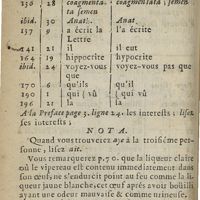 136 28 coagmenta- coagmentata; semen
ta semen
ibid. 30 Anat. Anat
137 9 a écrit la l'a écrite
Lettre
141 21 il il eut
164 19 hippocrite hypocrite
ibid. 24 voyez-vous voyez-vous pas que
que
170 6 qu'ils qu'il
190 1 qui (vû (vû
196 21 la la
A la Preface page 3. ligne 24. les interests ; lisez
ses interests ;
NOTA.
Quand vous trouverez aye à la troisiéme per-
sonne, lisez ait.
Vous remarquerez p. 70. que la liqueur claire
où le vipereau est contenu immediatement dans
son œuf, se s'endurcit point au feu comme la
liqueur jaune blanche, cet œuf aprés avoir boüilly
ayant une odeur mauvaise & comme urineuse.